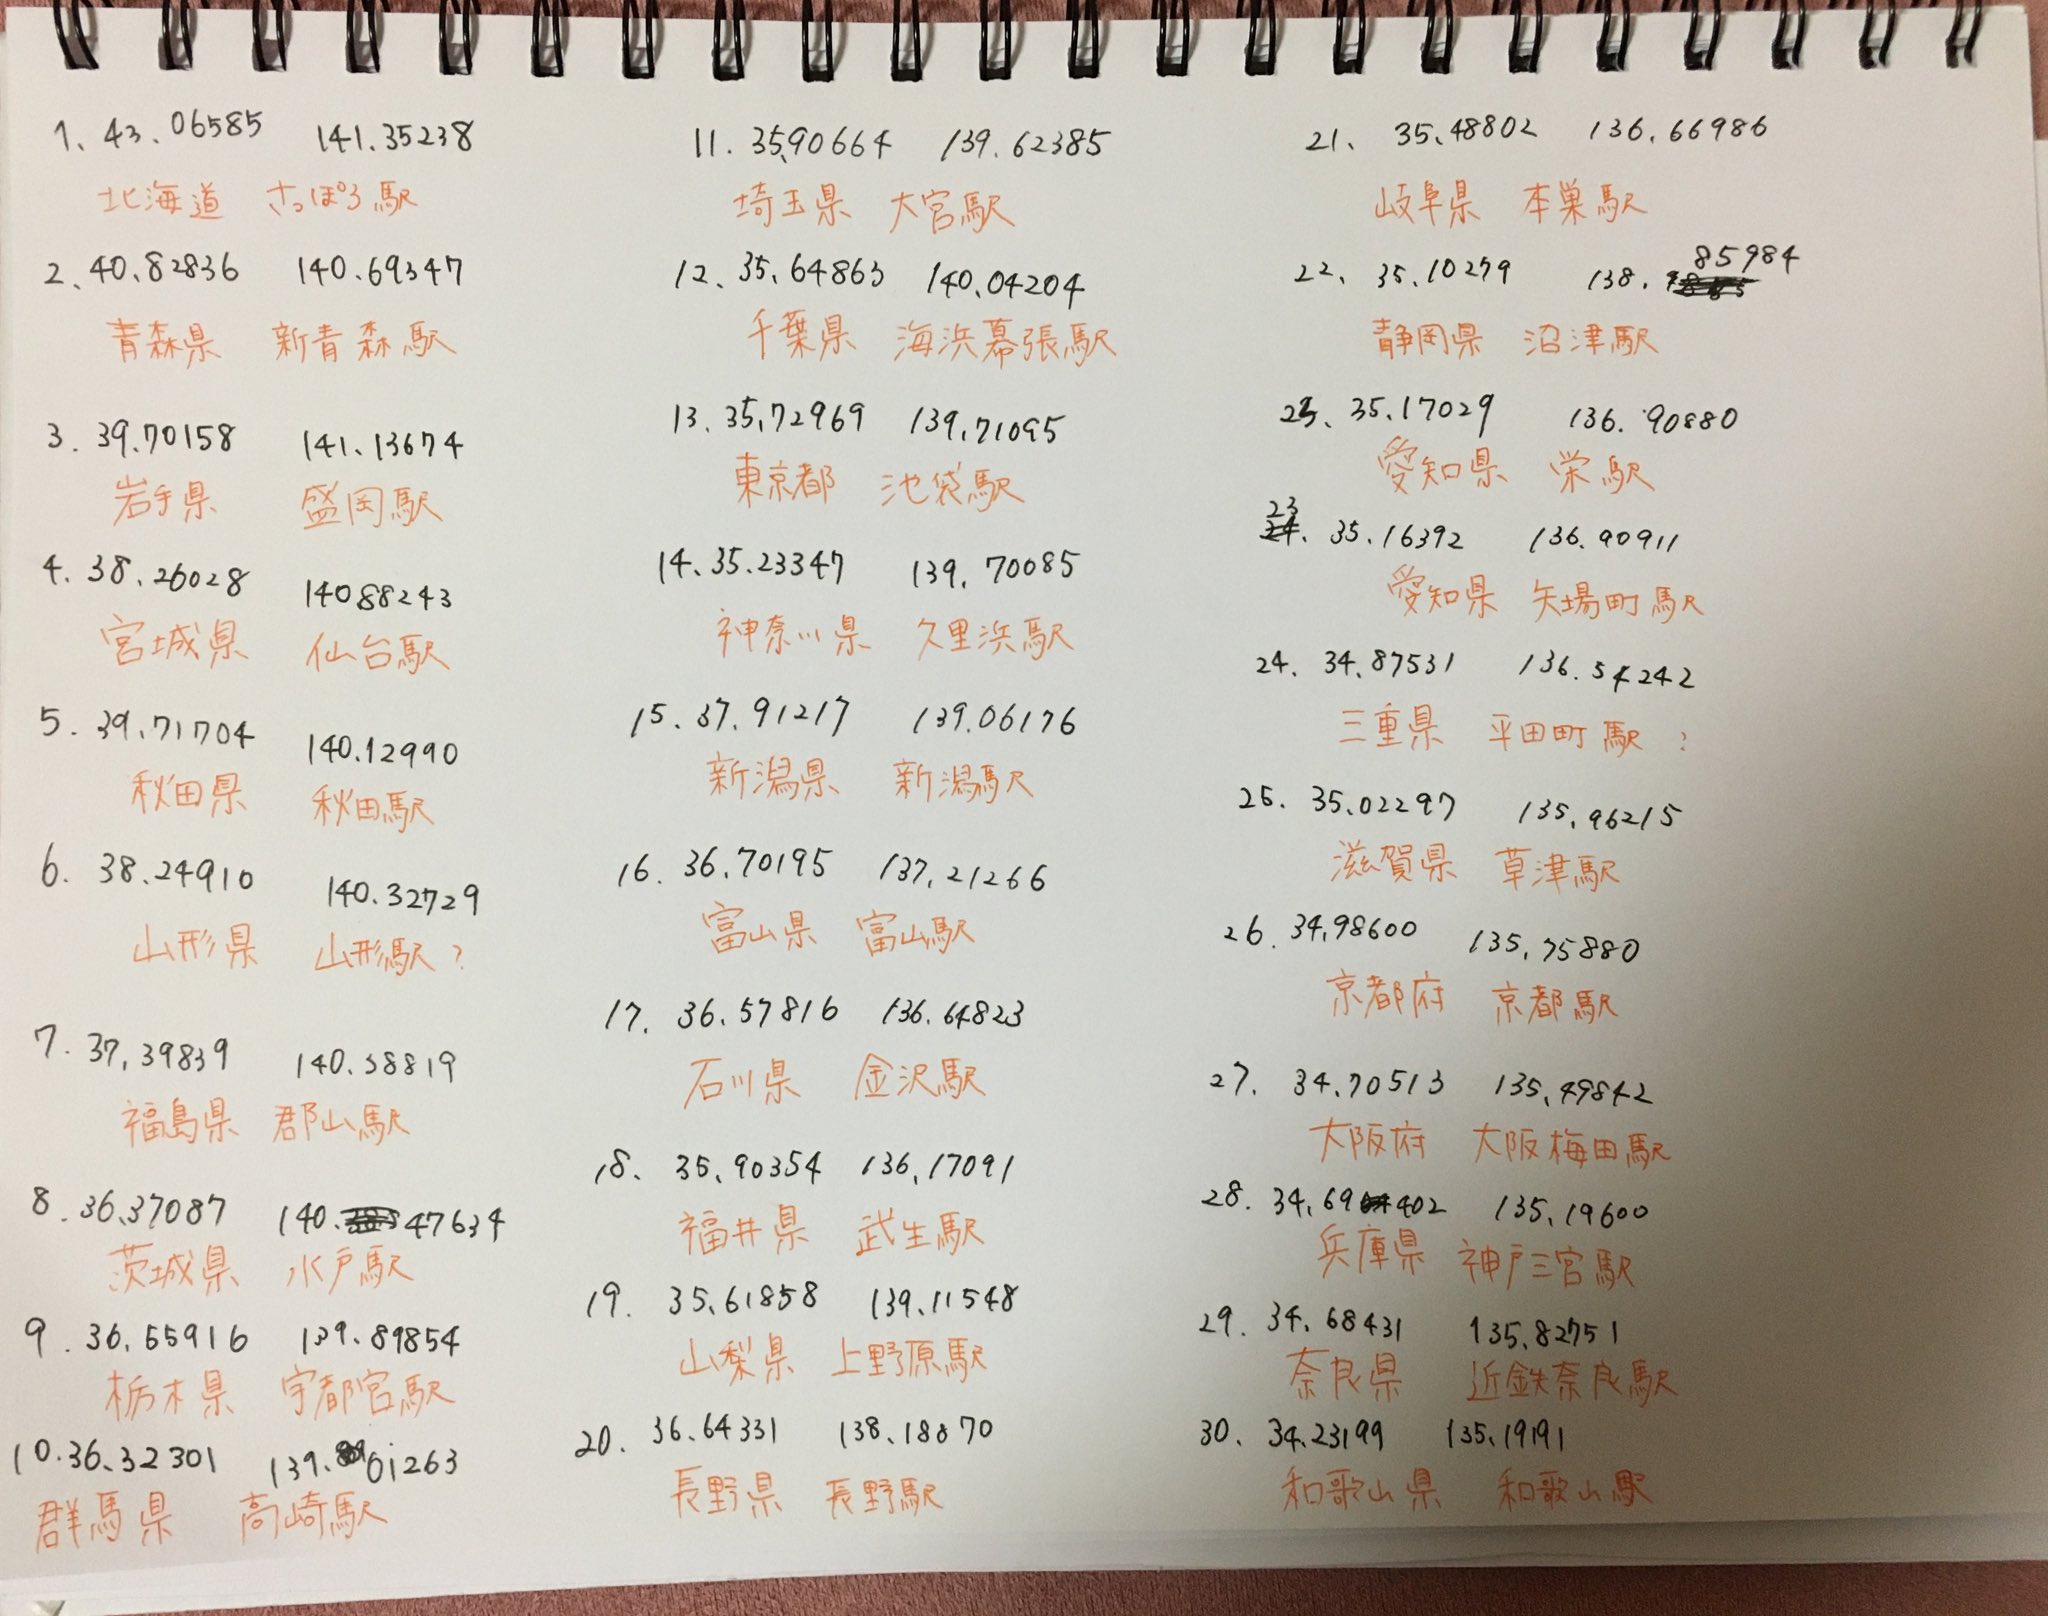 1. 43.06585 141.35238
北海道 さっぽろ駅
2. 40.82836 140.69347
青森県 新青森駅
3. 39.70158 141.13674
岩手県 盛岡駅
4. 38.26028 14088243
宮城県 仙台駅
5. 39.71704 140.12990
秋田県 秋田駅
6. 38.24910 140.32729
山形県 山形駅?
7. 37.39839 140.38819
福島県 郡山駅
8. 36.37087 140.47634
茨城県 水戸駅
9. 36.55916 139.89854
栃木県 宇都宮駅
10. 36.32301 139.01263
群馬県 高崎駅
11. 35.90664 139.62385
埼玉県 大宮駅
12. 35.64863 140.04204
千葉県 海浜幕張駅
13. 35.72969 139.71095
東京都 池袋駅
14. 35.23347 139.70085
神奈川県 久里浜駅
15. 37.91217 139.06176
新潟県 新潟駅
16. 36.70195 137.21266
富山県 富山駅
17. 36.57816 136.64823
石川県 金沢駅
18. 35.90354 136.17091
福井県 武生駅
19. 35.61858 139.11548
山梨県 上野原駅
20. 36.64331 138.18870
長野県 長野駅
21. 35.48802 136.66986
岐阜県 本巣駅
22. 35.10279 138.85984
静岡県 沼津駅
23. 35.17029 136.90880
愛知県 栄駅
23. 35.16392 136.90911
愛知県 矢場町駅
24. 34.87531 136.54242
三重県 平田町駅?
25. 35.02297 135.96215
滋賀県 草津駅
26. 34.98600 135.75880
京都府 京都駅
27. 34.70513 135.49842
大阪府 大阪梅田駅
28. 34.69402 135.19600
兵庫県 神戸三宮駅
29. 34.68431 135.82751
奈良県 近鉄奈良駅
30. 34.23199 135.19191
和歌山県 和歌山駅